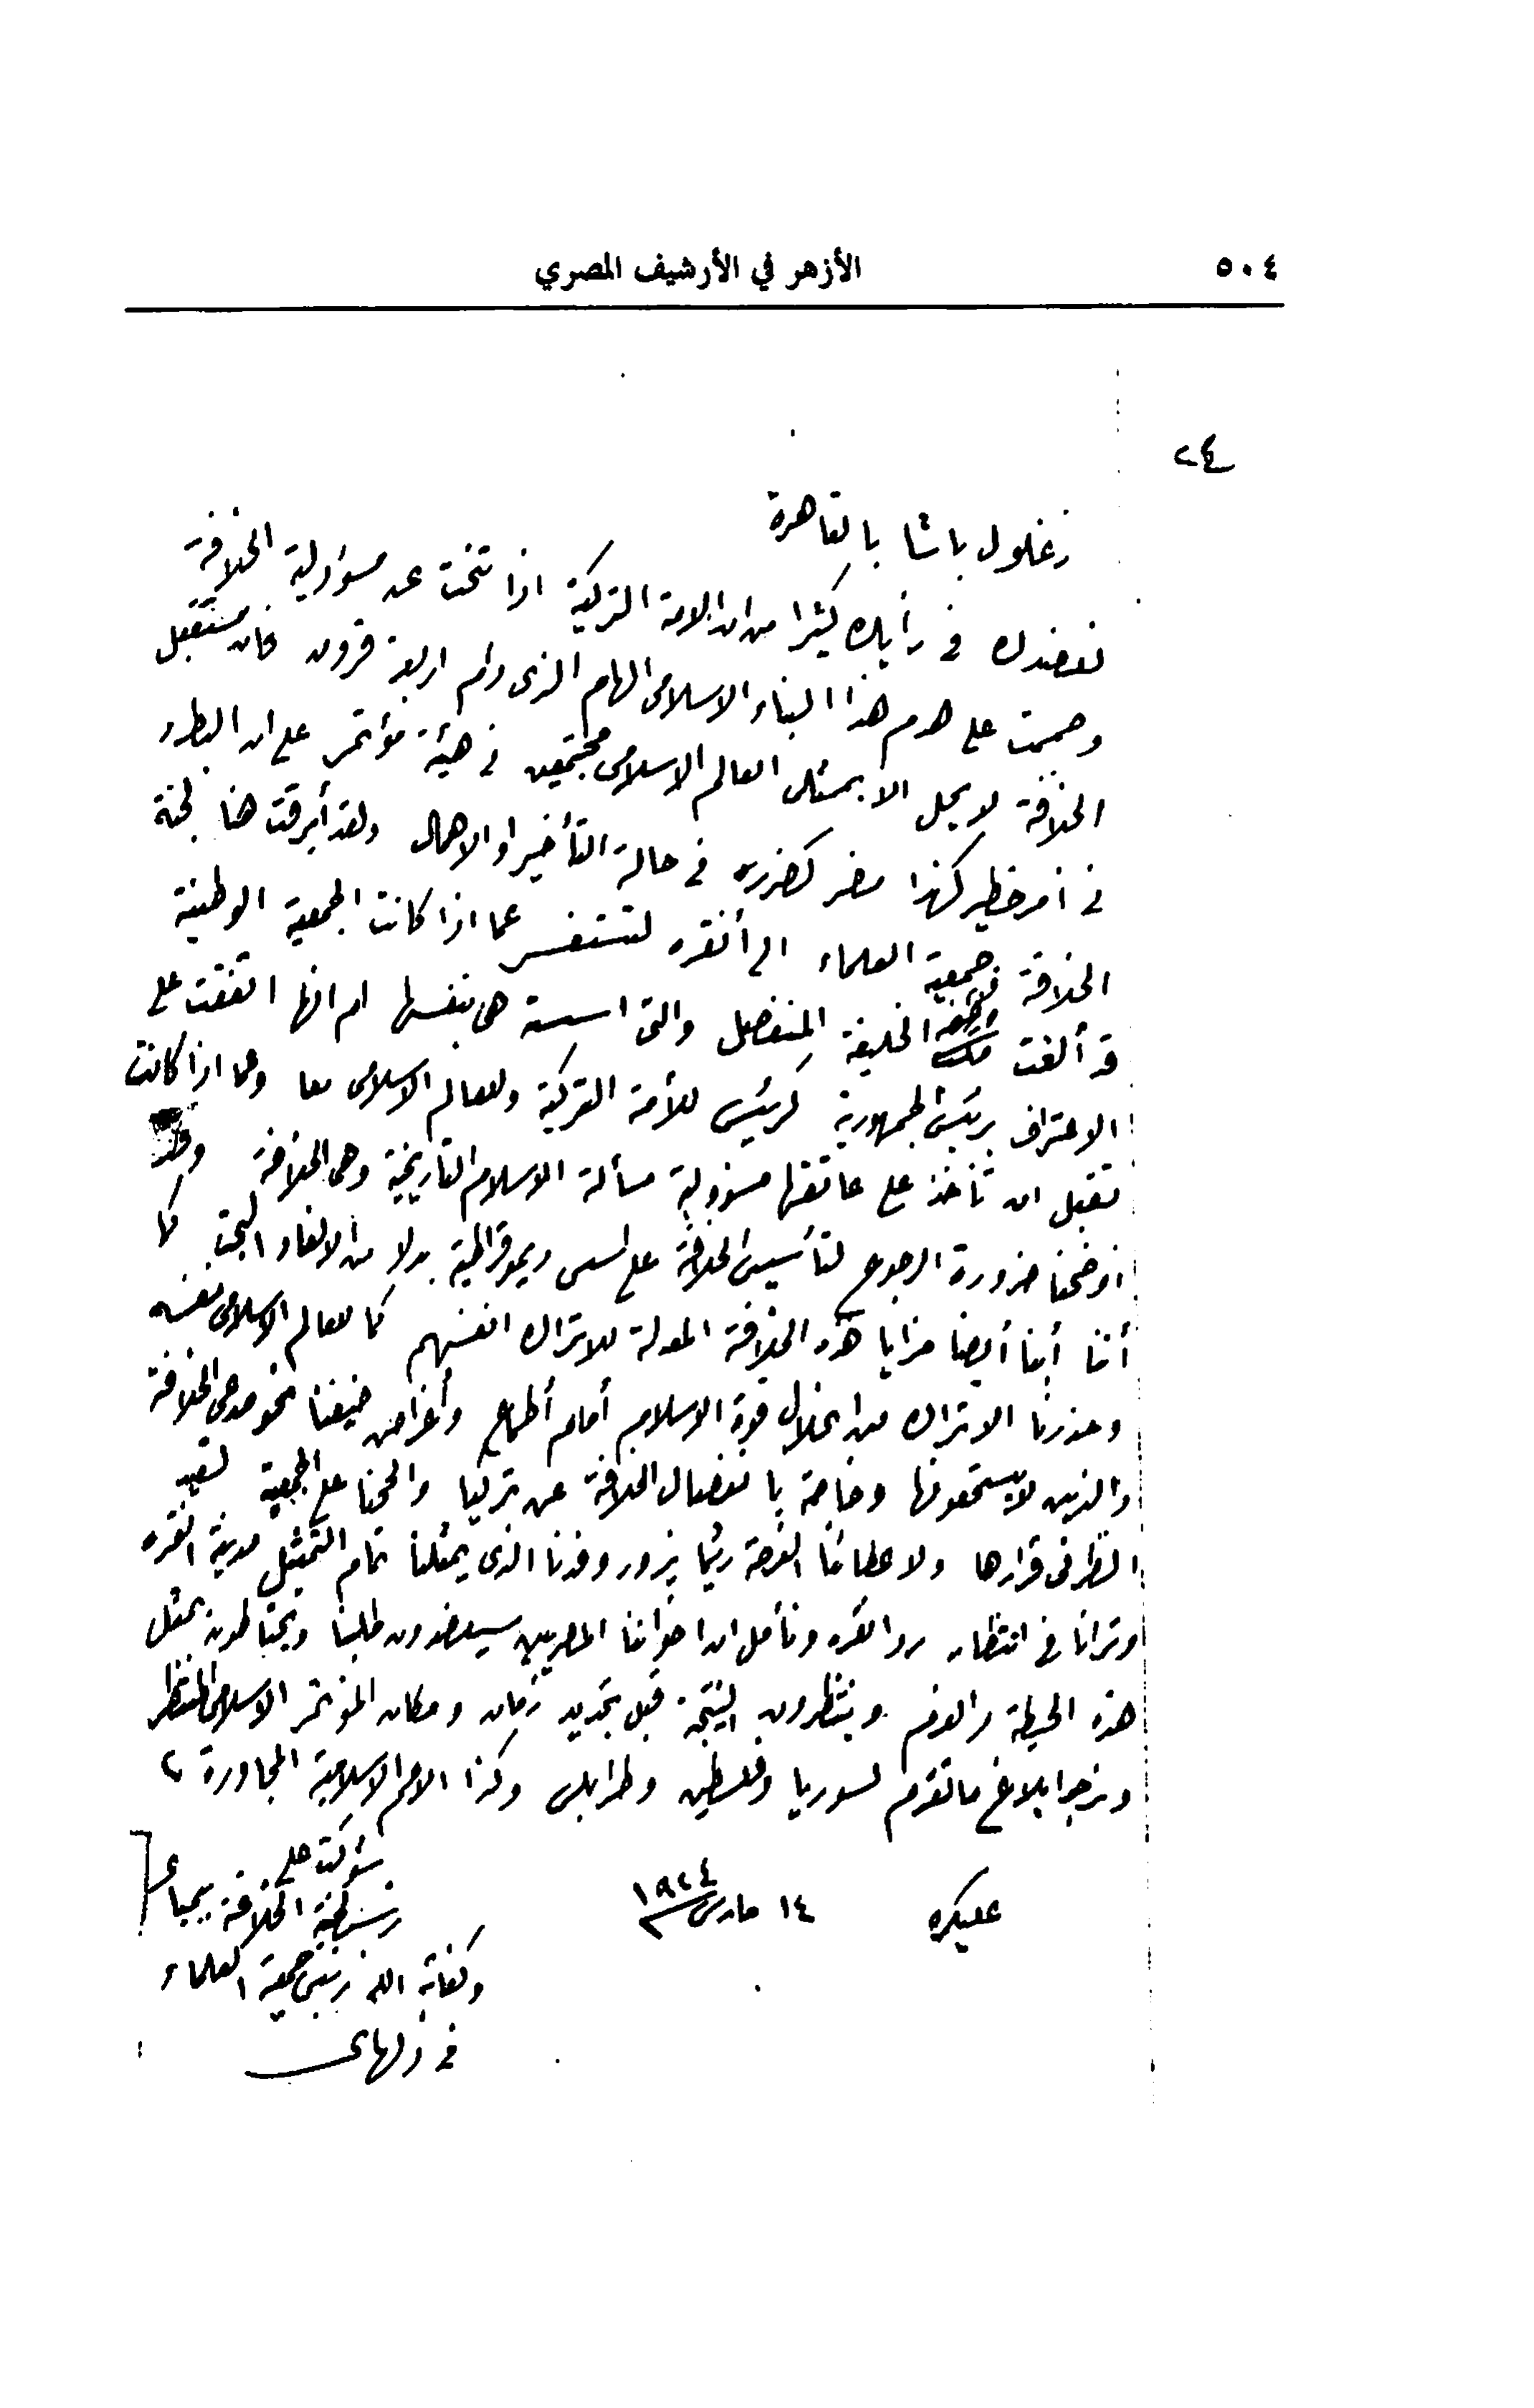 ٥٠٤
الأزهر في الأرشيف المصري
٢٤
زغلول باشا بالقاهرة
نعضدك فى رأيك كثيرا من ان الامة التركية اذا تخت عن مسؤولية الخلافة
وصممت على هدم هذا البناء الاسلامى الهام الذى دام اربعة قرون فان مستقبل
الخلافة لا يحل الا بممثلى العالم الاسلامى مجتمعين فى هيئة مؤتمر على ان البطء
فى أمر خطير كهذا مضر كضرره فى حالة التأخير او الاهمال ولقد أبرقت هنا لجنة
الخلافة وجمعية العلماء الى أنقره لتستفسر عما اذا كانت الجمعية الوطنية
قد ألغت وظيفة الخليفة المنفصل والتى اسسته هى بنفسها ام انها اتفقت على
الاعتراف برئيس الجمهورية كرئيس للأمة التركية وللعالم الاسلامى معا وعما اذا كانت
تقبل ان تأخذ على عاتقها مسؤولية مسألة الاسلام التاريخية وهى الخلافة وقد
اوضحنا ضرورة الرجوع لتأسيس الخلافة على اسس ديموقراطية بدلا من الالغاء البتى كما
أننا أبنا أيضا مزايا هذه الخلافة المعدلة للاتراك انفسهم كما للعالم الاسلامى نفسه
وحذرنا الاتراك من انحلال قوة الاسلام أمام أطماع وأغراض خيفنا نحو مدعى الخلافة
والذين لا يستحقونها وخاصة بانفصال الخلافة عن تركيا والححنا على الجمعية لتعيد
النظر فى قرارها ولاعطائنا الفرصة ريثما يزور وفدنا الذى يمثلنا تمام التمثيل مدينة انقره
وترانا فى انتظار رد انقره ونأمل ان اخواننا المصريين سيعضدون طلبنا ويحتاطون بمثل
هذه الحيطة وينتظرون النتيجة قبل تحديد زمان ومكان المؤتمر الاسلامى المنتظر
ونرجو ابلاغ ما تقدم لسوريا وفلسطين وطرابلس وكذا الامم الاسلامية المجاورة
عليكره ١٤ مارس ١٩٢٤
شوكت على
رئيس لجنة الخلافة ببمباى
وكفاية الله رئيس جمعية العلماء
فى دلهاى